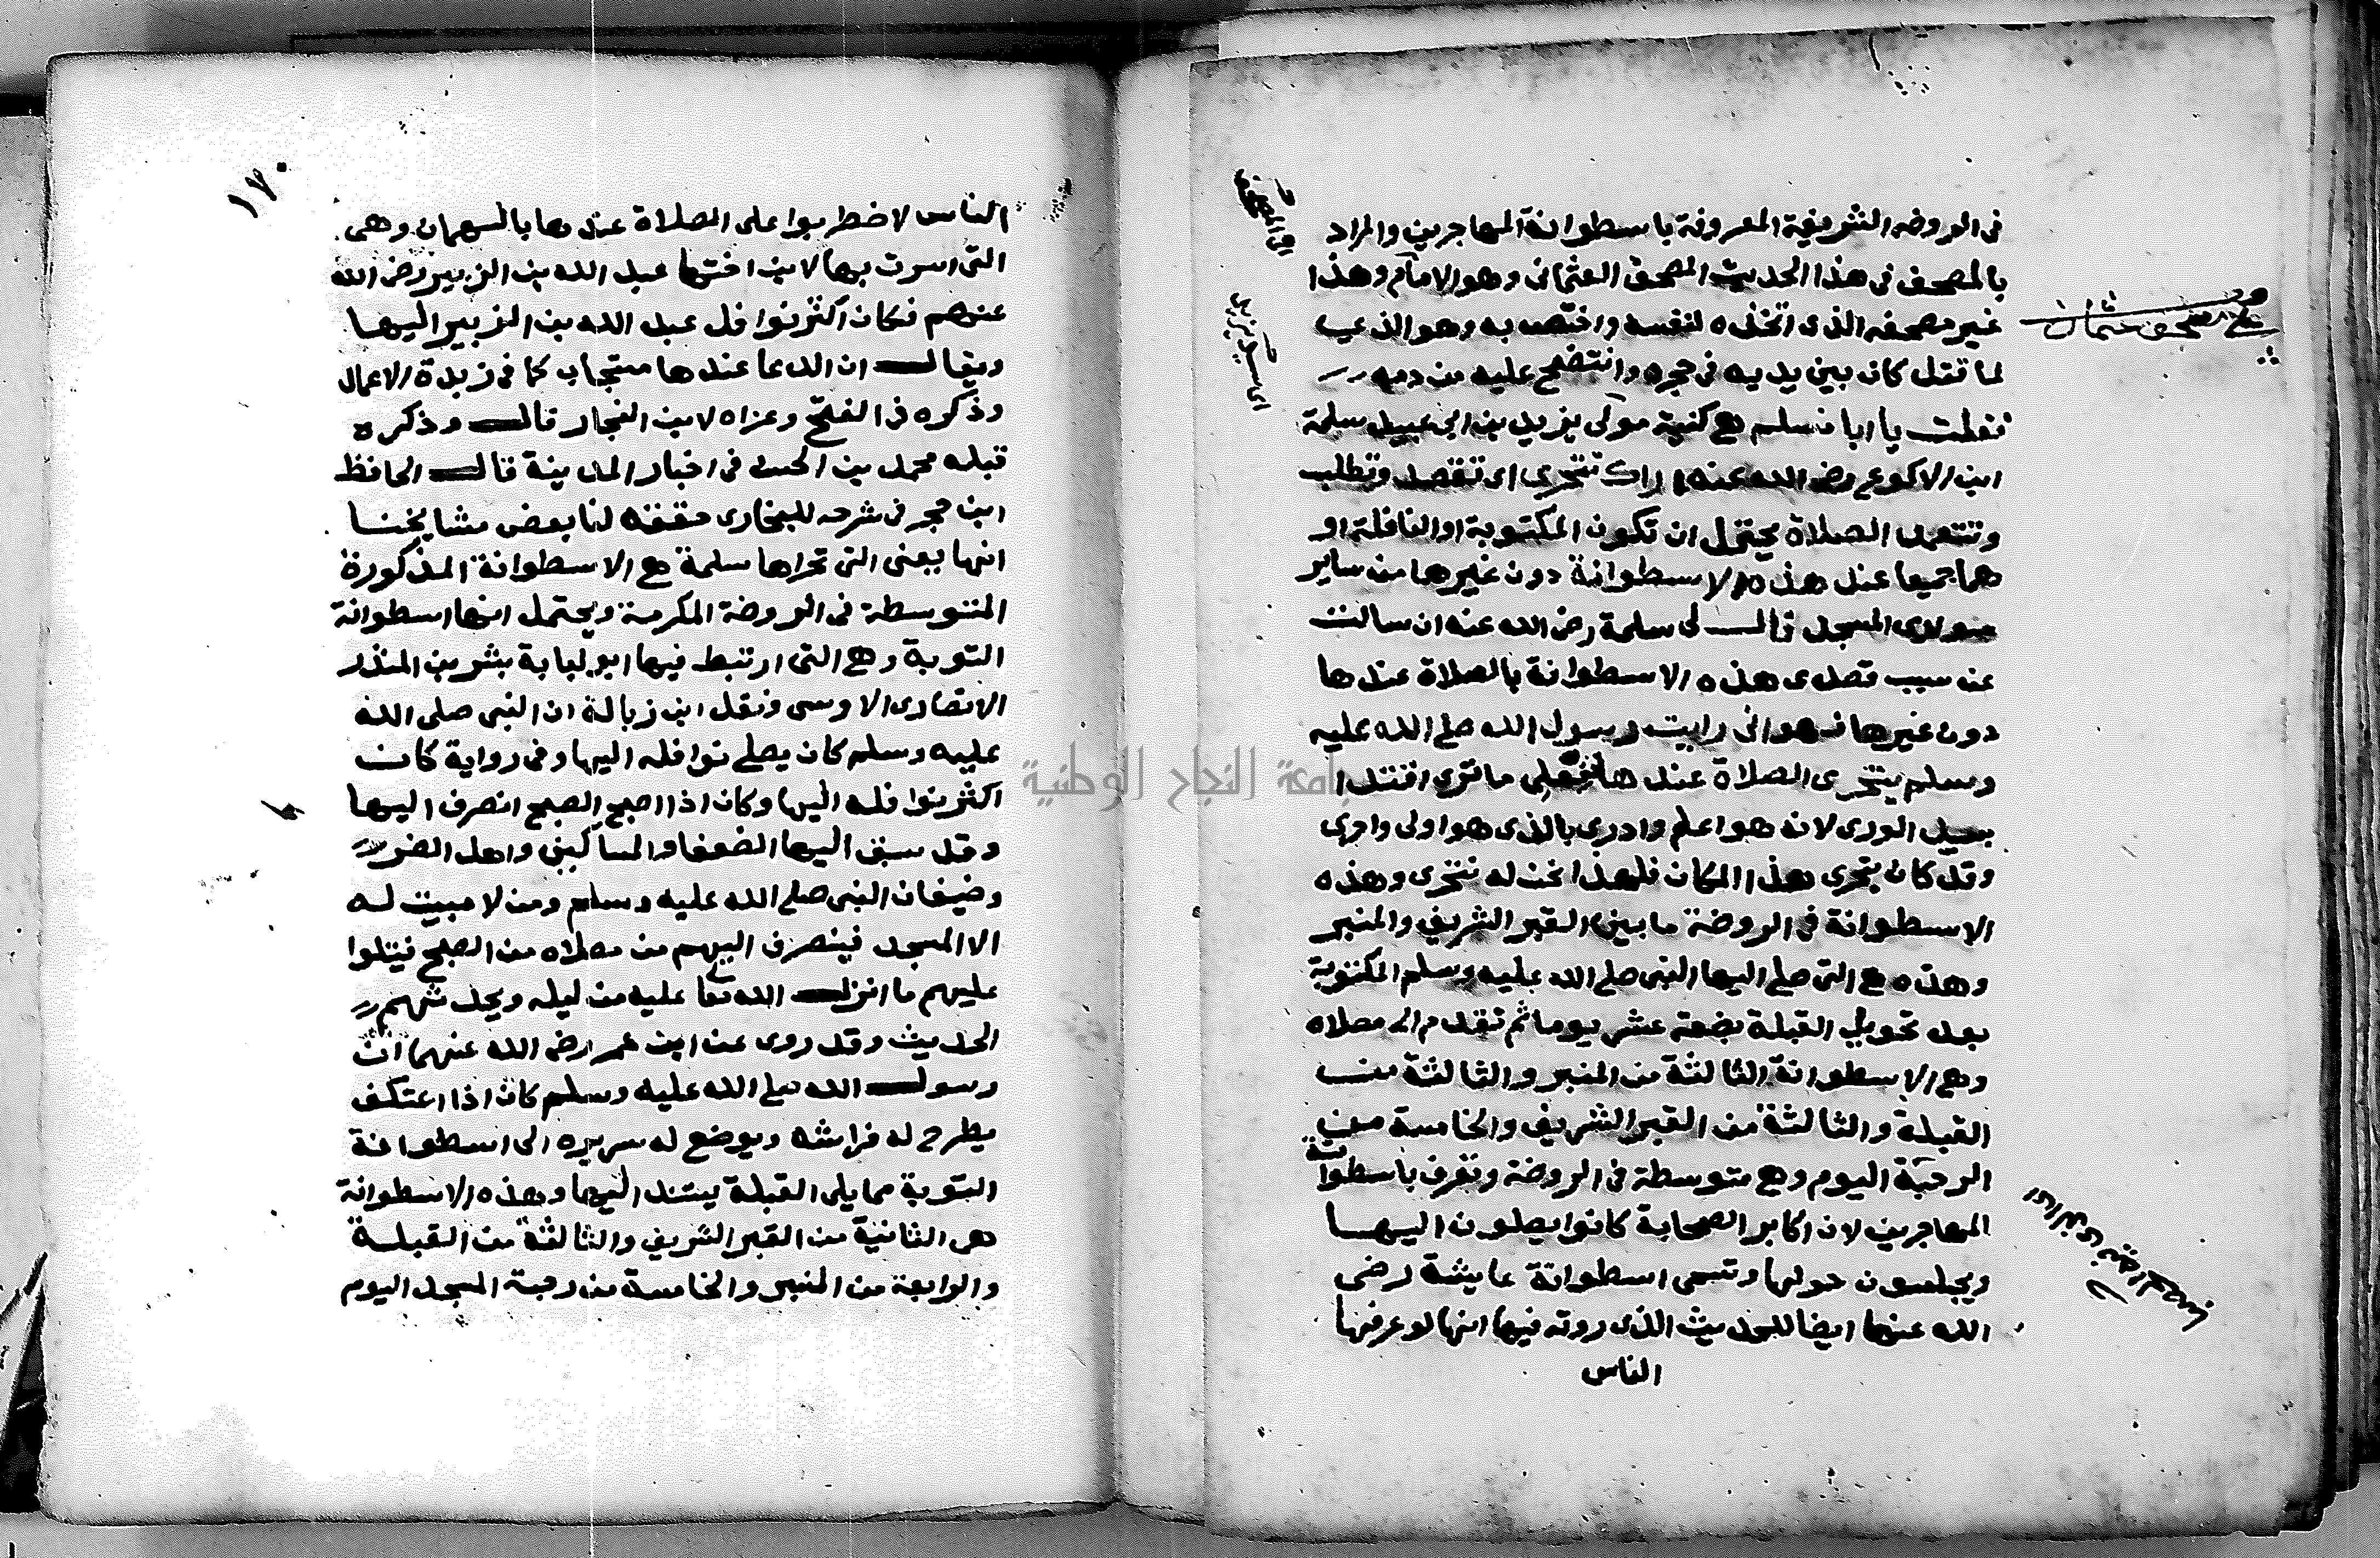 في الروضه الشريفة المعروفة باسطوانة المهاجرين والمراد
بالمصحف في هذا الحديث المصحف العثماني وهو الامام وهذا
غير مصحفه الذي اتخذه لنفسه واختص به وهو الذي
لما قتل كان بين يديه في حجره وانتضح عليه من دمه
فقلت يا ابا مسلم هي كنية مولى يزيد بن ابي عبيد سلمة
ابن الاكوع رضي الله عنه اراك تتحرى اي تقصد وتطلب
وتتعمد الصلاة يحتمل ان تكون المكتوبة او النافلة او
هما جميعا عند هذه الاسطوانة دون غيرها من ساير
سواري المسجد قال لي سلمة رضي الله عنه ان سالت
عن سبب قصدي هذه الاسطوانة بالصلاة عندها
دون غيرها فهو اني رايت رسول الله صلى الله عليه
وسلم يتحرى الصلاة عندها ما ترى اقتدا
بسيد الورى لانه هو اعلم وادرى بالذي هو اولى واحرى
وقد كان يتحرى هذا المكان فلهذا نحن له نتحرى وهذه
الاسطوانة في الروضة ما بين القبر الشريف والمنبر
وهذه هي التي صلى اليها النبي صلى الله عليه وسلم المكتوبة
بعد تحويل القبلة بضعة عشر يوما ثم تقدم الى مصلاه
وهي الاسطوانة الثالثة من المنبر والثالثة من
القبلة والثالثة من القبر الشريف والخامسة من
الرحبة اليوم وهي متوسطة في الروضة وتعرف باسطوانة
المهاجرين لان اكابر الصحابة كانوا يصلون اليها
ويجلسون حولها وتسمى اسطوانة عايشة رضي
الله عنها ايضا للحديث الذي روته فيها انها لو عرفها
الناس
مصحف عثمان
١٧٠
الناس لاضطربوا على الصلاة عندها بالسهمان وهي
التي اسرت بها لابن اختها عبد الله بن الزبير رضي الله
عنهم فكان اكثر نوافل عبد الله بن الزبير اليها
ويقال ان الدعا عندها مستجاب كما في زبدة الاعمال
وذكره في الفتح وعزاه لابن النجار قال وذكره
قبله محمد بن الحسن في اخبار المدينة قال الحافظ
ابن حجر في شرحه للبخاري حققه لنا بعض مشايخنا
انها يعني التي تحراها سلمة هي الاسطوانة المذكورة
المتوسطة في الروضة المكرمة ويحتمل انها اسطوانة
التوبة وهي التي ارتبط فيها ابو لبابة بشر بن المنذر
الانصاري الاوسي ونقل ابن زبالة ان النبي صلى الله
عليه وسلم كان يصلي نوافله اليها وفي رواية كان
اكثر نوافله اليها وكان اذا اصبح الصبح انصرف اليها
وقد سبق اليها الضعفا والمساكين واهل الضر
وضيفان النبي صلى الله عليه وسلم ومن لا مبيت له
الا المسجد فينصرف اليهم من مصلاه من الصبح فيتلوا
عليهم ما انزل الله تعا عليه من ليله ويحدثهم
الحديث وقد روى عن ابن عمر رضي الله عنهما ان
رسول الله صلى الله عليه وسلم كان اذا اعتكف
يطرح له فراشه ويوضع له سريره الى اسطوانة
التوبة مما يلي القبلة يستند اليها وهذه الاسطوانة
هي الثانية من القبر الشريف والثالثة من القبلة
والرابعة من المنبر والخامسة من رحبة المسجد اليوم
جامعة النجاح الوطنية